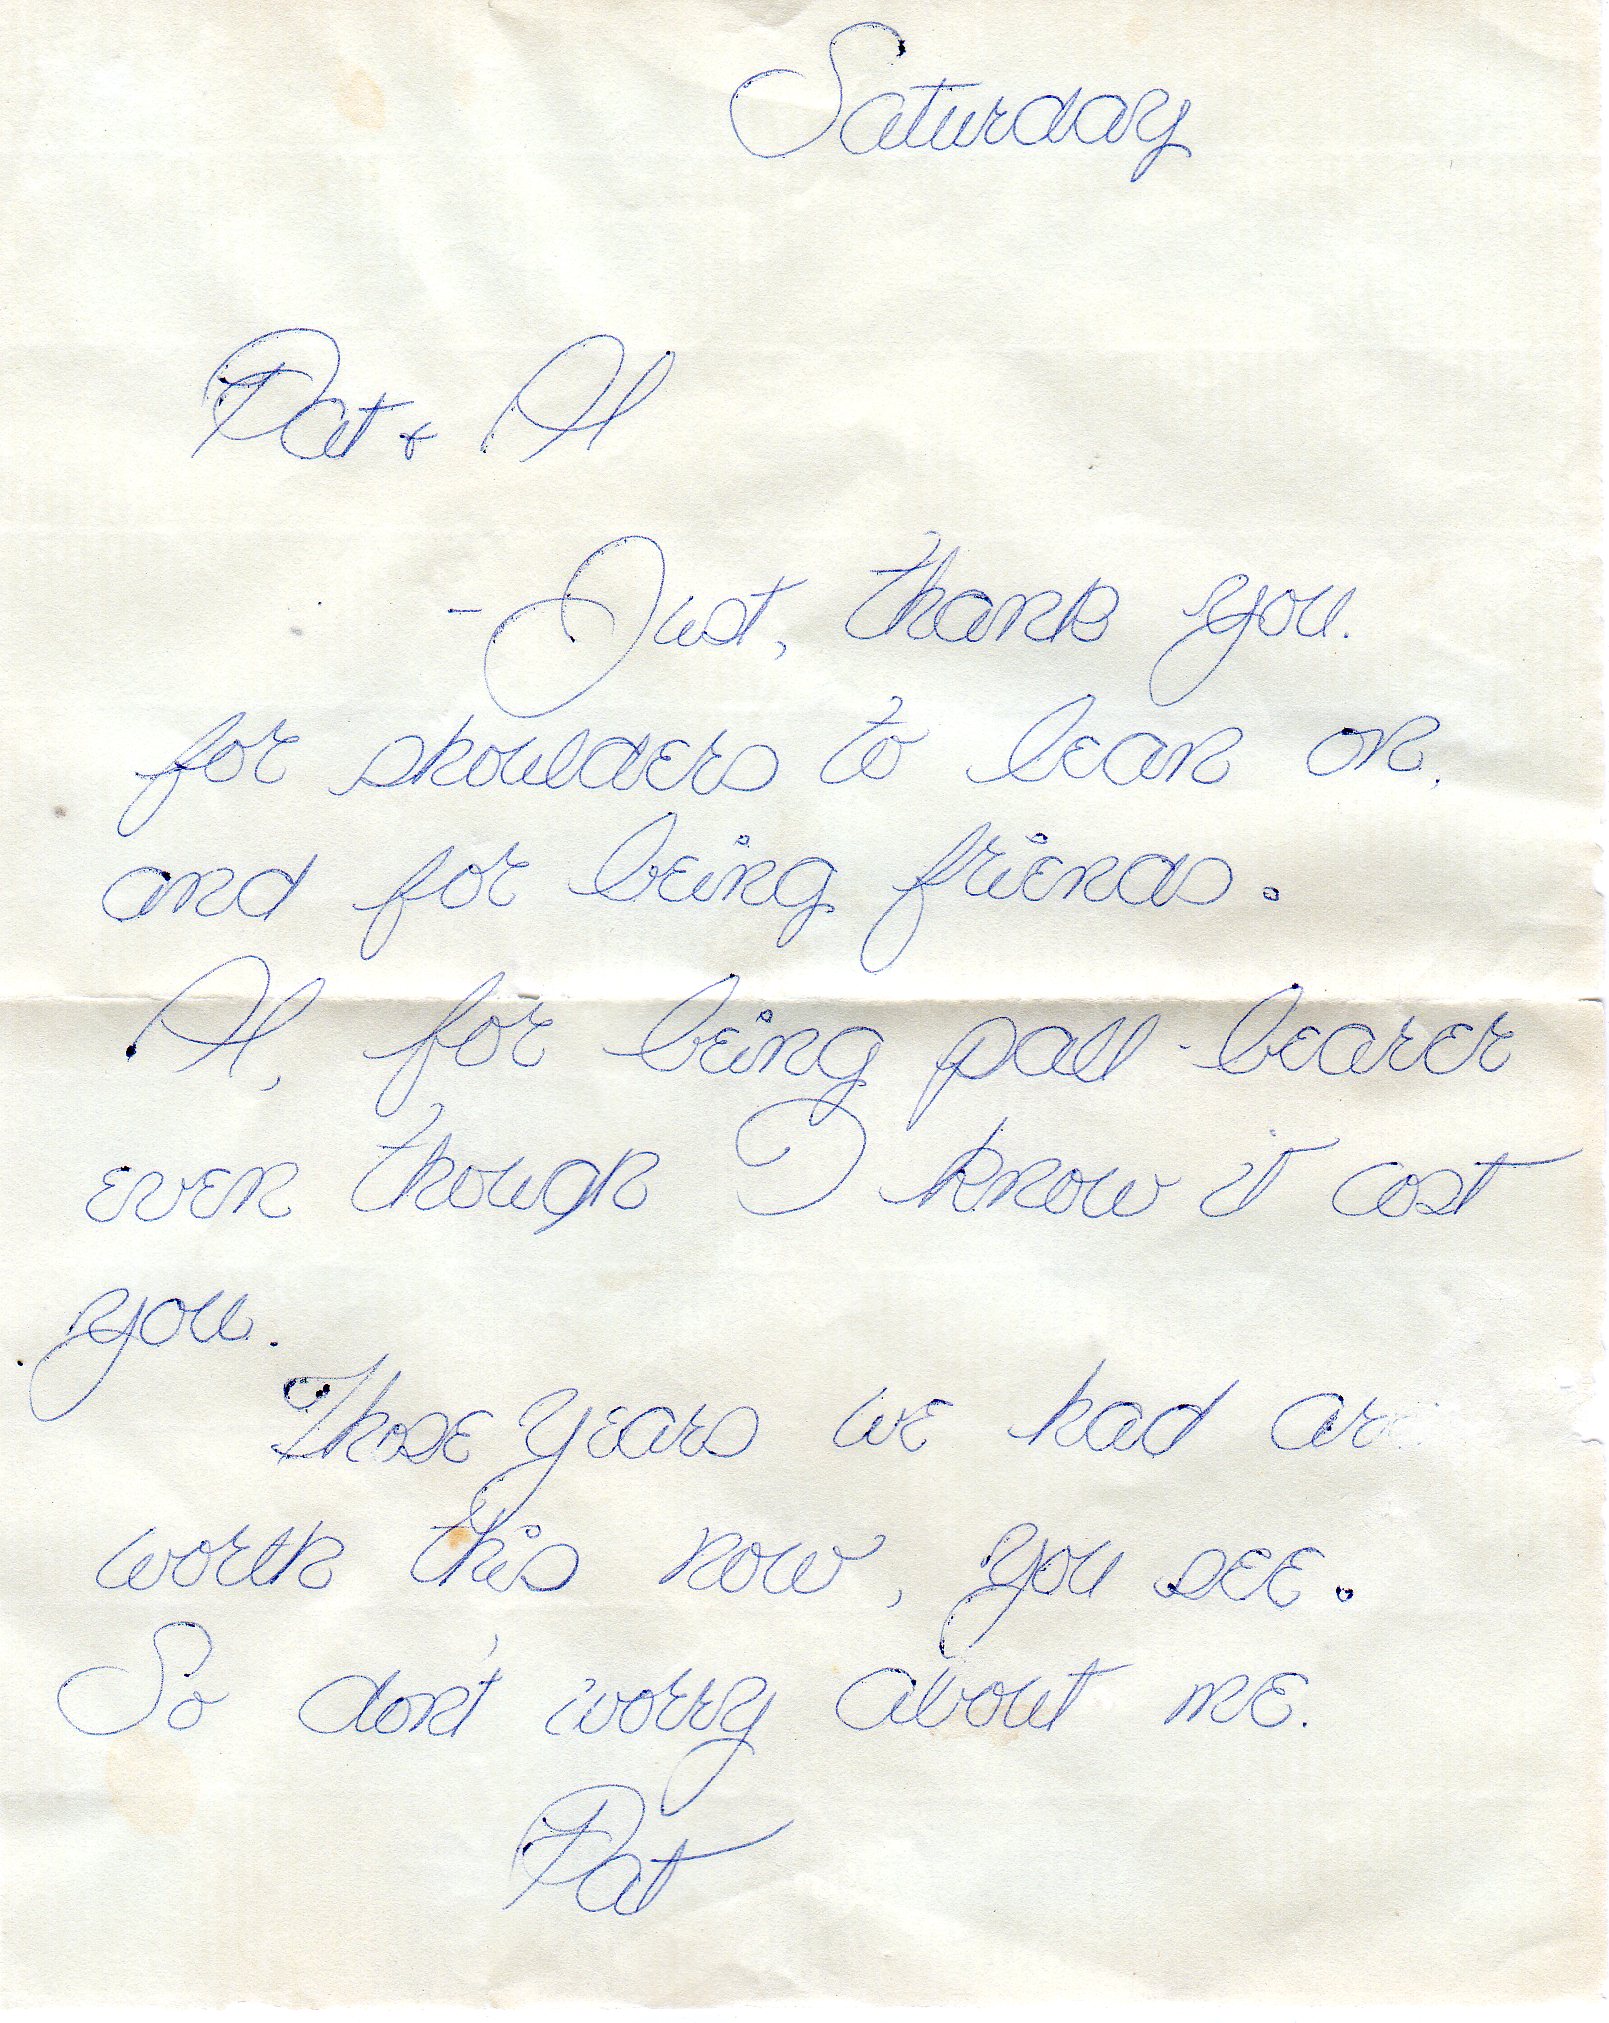 Saturday
Pat + Al
- Just, thank you.
for shoulders to lean on,
and for being friends.
Al, for being pall-bearer
even though I know it cost
you.
Those years we had are
worth this now, you see.
So don't worry about me.
Pat